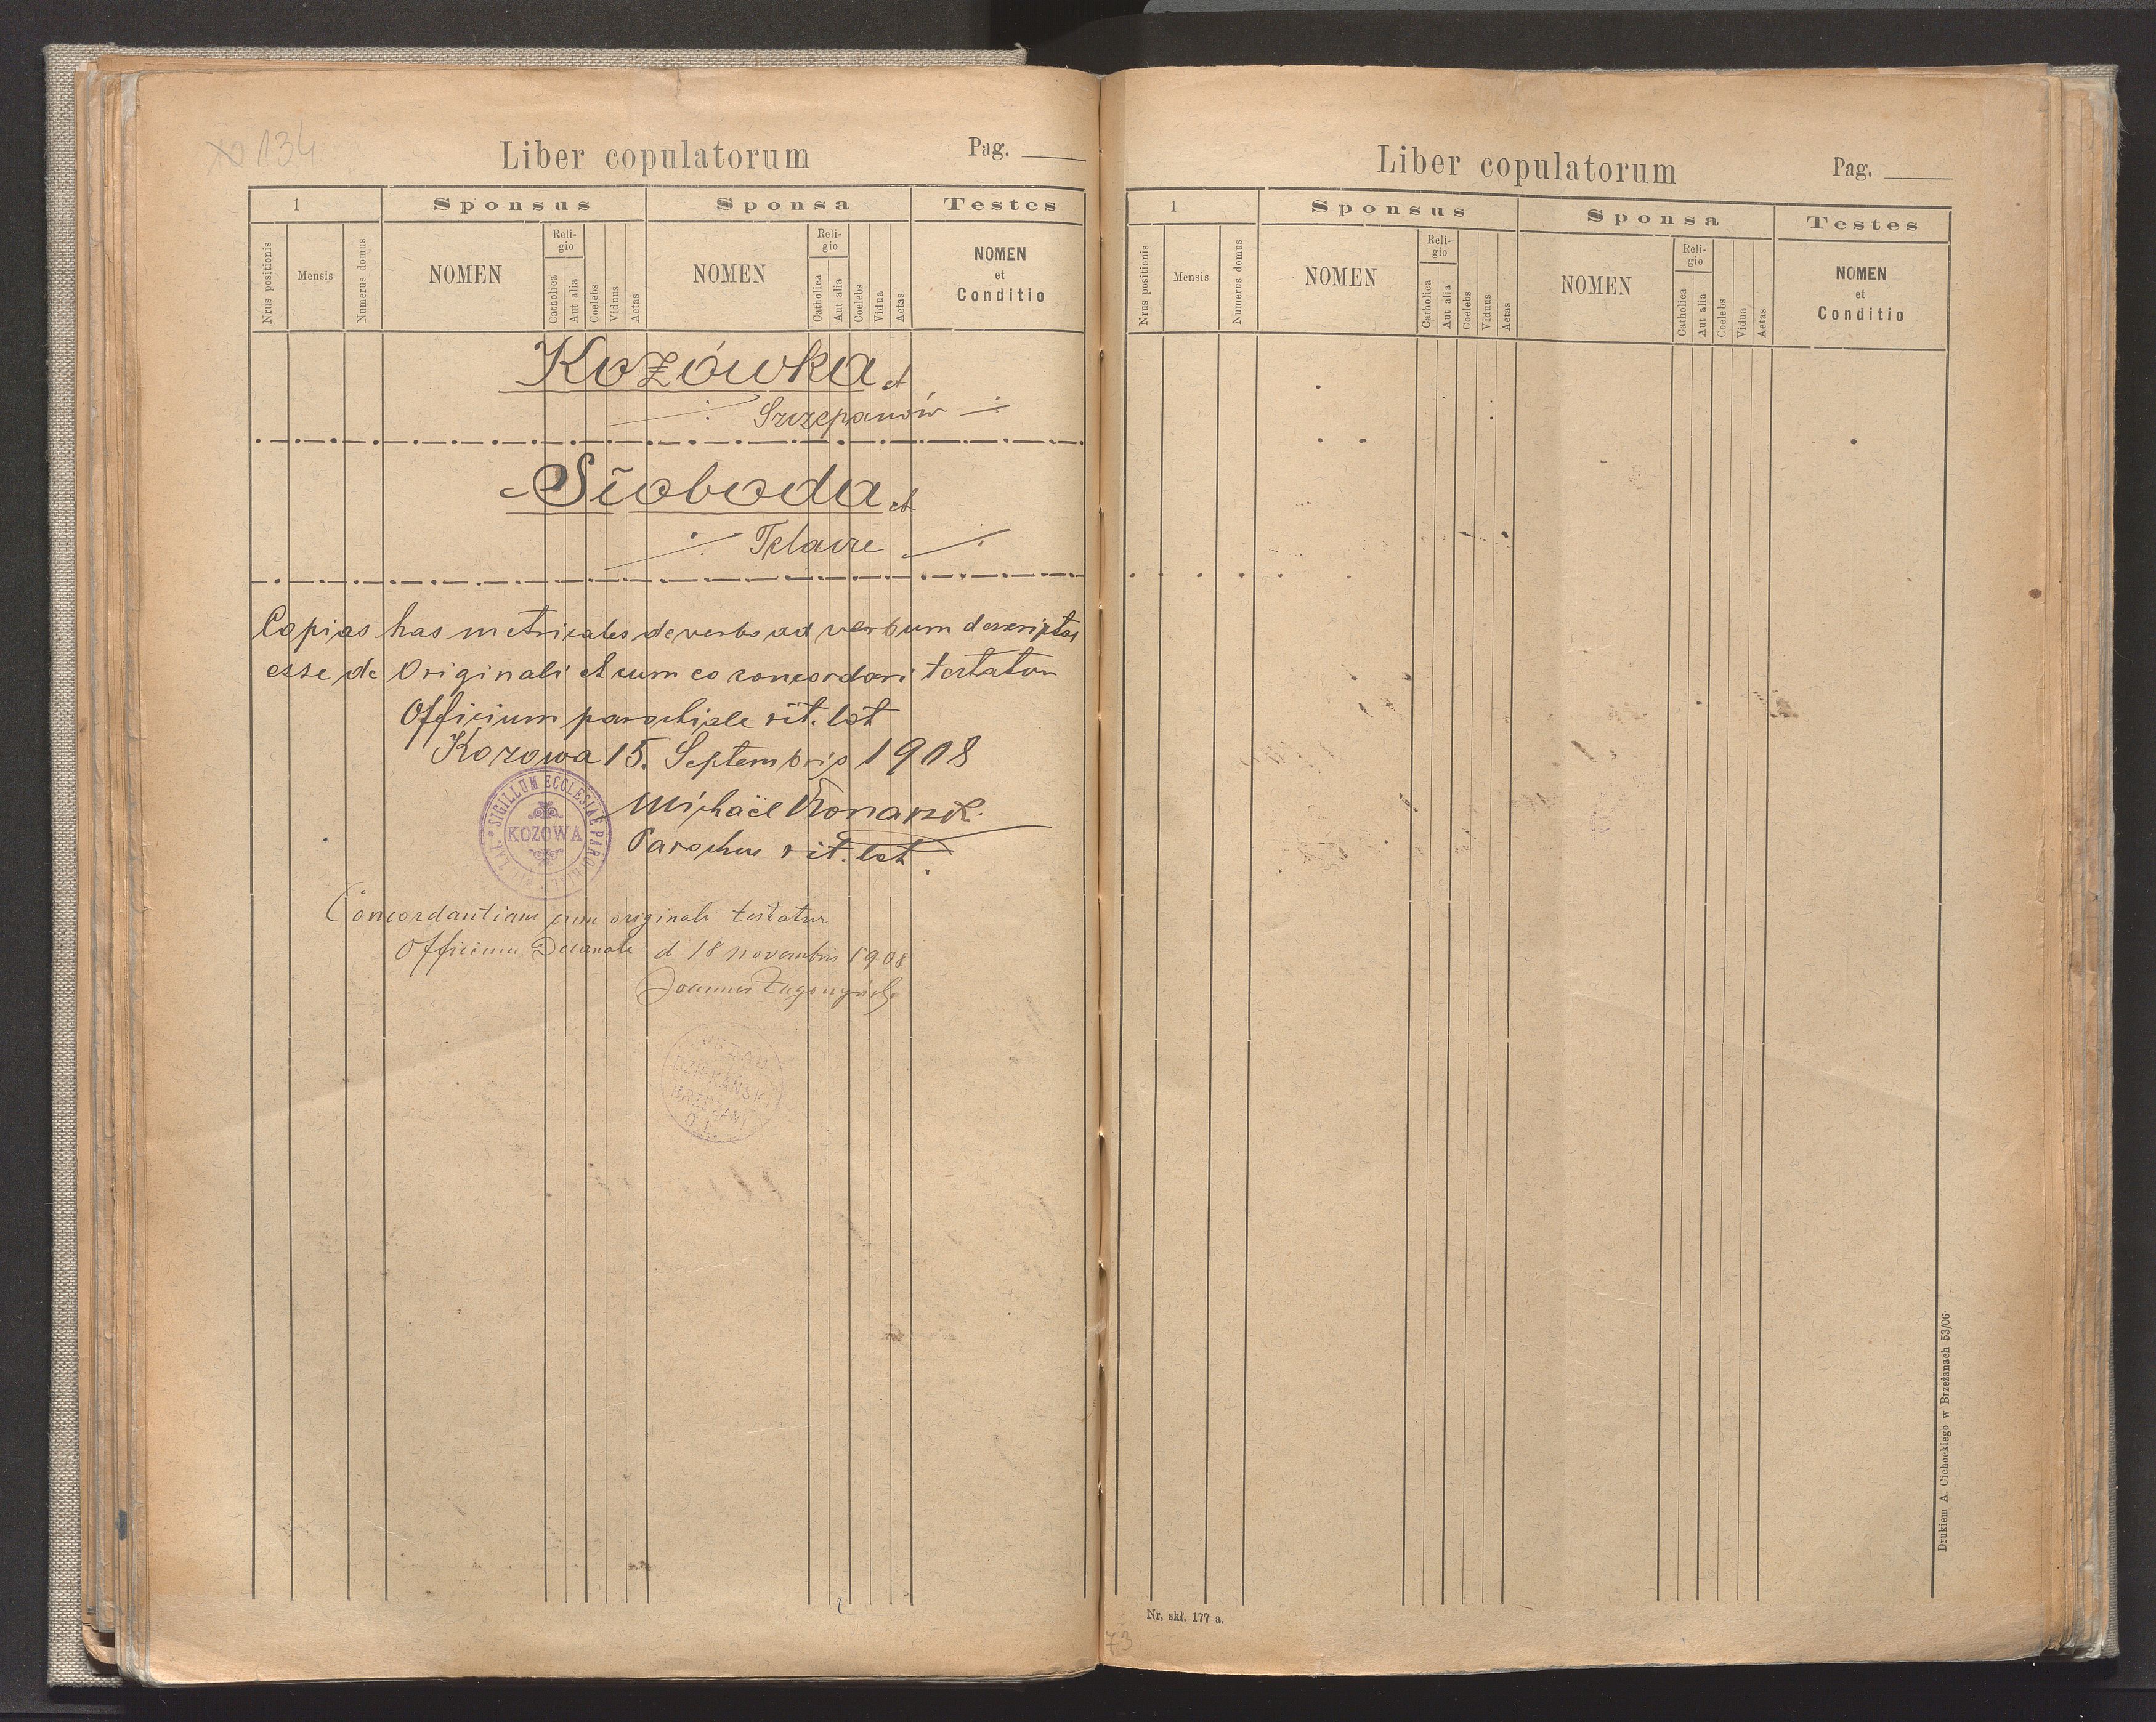 134
Liber copulatorum Pag.
1 Sponsus Sponsa Testes
Nrus positionis Mensis Numerus domus NOMEN Religio Catholica Aut alia Coelebs Viduus Aetas NOMEN Religio Catholica Aut alia Coelebs Vidua Aetas NOMEN et Conditio
Kozówka et
Szczepanów
Słoboda et
Telacze
Copias has metricales de verbo ad verbum descriptas
esse de Originali et cum eo concordari testatur
Officium parochiale rit. lat
Kozowa 15. Septembris 1908
SIGILLUM ECCLESIAE PAROCHIAL RIT LAT
KOZOWA
Michaël
Parochus rit. lat
Concordantiam cum originali testatur
Officium Decanale d 18 novembris 1908
Joannes
URZĄD
DZIEKAŃSKI
BRZEŻANY
O. Ł.
Liber copulatorum Pag.
1 Sponsus Sponsa Testes
Nrus positionis Mensis Numerus domus NOMEN Religio Catholica Aut alia Coelebs Viduus Aetas NOMEN Religio Catholica Aut alia Coelebs Vidua Aetas NOMEN et Conditio
Drukiem A. Cichockiego w Brzeżanach 53/06
Nr. skł. 177 a.
73